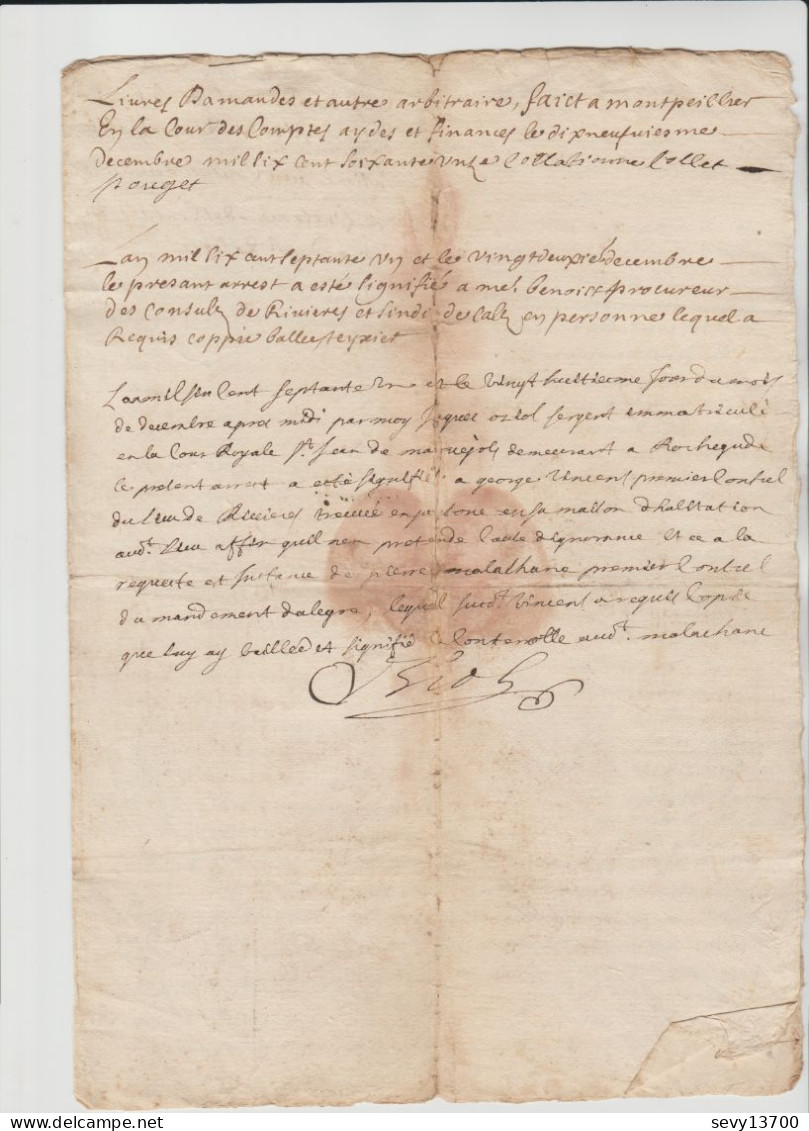 Livres Damandes et autre arbitraire, faict a montpeillier
En la Cour des Comptes aydes et finances le dixneufviesme
decembre mil six cent soixante unze Collationne Collet
pouget
Lan mil six cent septante un et le vingt deuxie decembre
le presant arrest a esté signifié a me benoict procureur
des Consulz de Rivieres et sindic de en personne lequel a
Requis coppie ballee teyxiet
Lan mil six cent septante un et le vingt huitiesme jour du mois
de decembre apres midi par moy Jaques oziol sergent immatriculé
en la Cour Royale St Jean de maruejols demeurant a Rochegude
le present arrest a esté signifié a george vincens premier Consul
du lieu de Rivieres trouvé en persone en sa maison d'habitation
audt lieu affin quil nen pretende cause dignorance et ce a la
requeste et instance de pierre malachane premier Consul
du mandement dalegre, lequel susdt vincens a requis copie
que luy ay baillee et signifié audt malachane
Oziol
sevy13700